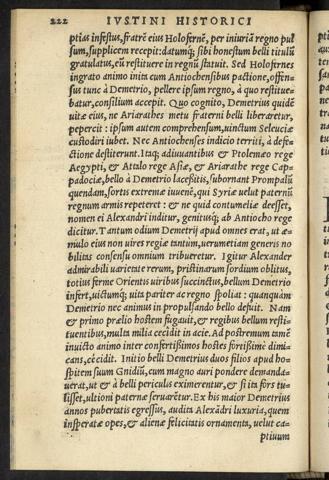 222 IVSTINI HISTORICI
ptias infestus, fratrẽ eius Holofernẽ, per iniuriã regno pul
sum, supplicem recepit: datumq́; sibi honestum belli titulũ
gratulatus, eũ restituere in regnũ statuit. Sed Holofernes
ingrato animo inita cum Antiochensibus pactione, offen-
sus tunc à Demetrio, pellere ipsum regno, à quo restitue-
batur, consilium accepit. Quo cognito, Demetrius quidẽ
uitæ eius, ne Ariarathes metu fraterni belli liberaretur,
pepercit: ipsum autem comprehensum, uinctum Seleuciæ
custodiri iubet. Nec Antiochenses indicio territi, à defe-
ctione destiterunt. Itaq; adiuuantibus & Ptolemæo rege
Aegypti, & Attalo rege Asiæ, & Ariarathe rege Cap-
padociæ, bello à Demetrio lacessitis, subornant Prompalũ
quendam, sortis extremæ iuuenẽ, qui Syriæ uelut paternũ
regnum armis repeteret: & ne quid contumeliæ deesset,
nomen ei Alexandri inditur, genitusq́; ab Antiocho rege
dicitur. Tantum odium Demetrij apud omnes erat, ut æ-
mulo eius non uires regiæ tantùm, uerumetiam generis no
bilitas consensu omnium tribueretur. Igitur Alexander
admirabili uarietate rerum, pristinarum sordium oblitus,
totius ferme Orientis uiribus succinctus, bellum Demetrio
infert, uictumq́; uita pariter ac regno spoliat: quanquàm
Demetrio nec animus in propulsando bello defuit. Nam
& primo prælio hostem fugauit, & regibus bellum resti-
tuentibus, multa milia cecidit in acie. Ad postremum tamẽ
inuicto animo inter confertissimos hostes fortissimè dimi-
cans, cecidit. Initio belli Demetrius duos filios apud ho-
spitem suum Gnidiũ, cum magno auri pondere demanda-
uerat, ut & à belli periculis eximerentur, & si ita fors tu-
lisset, ultioni paternæ seruarẽtur. Ex his maior Demetrius
annos pubertatis egressus, audita Alexãdri luxuria, quem
insperatæ opes, & alienæ felicitatis ornamenta, uelut ca-
ptiuum